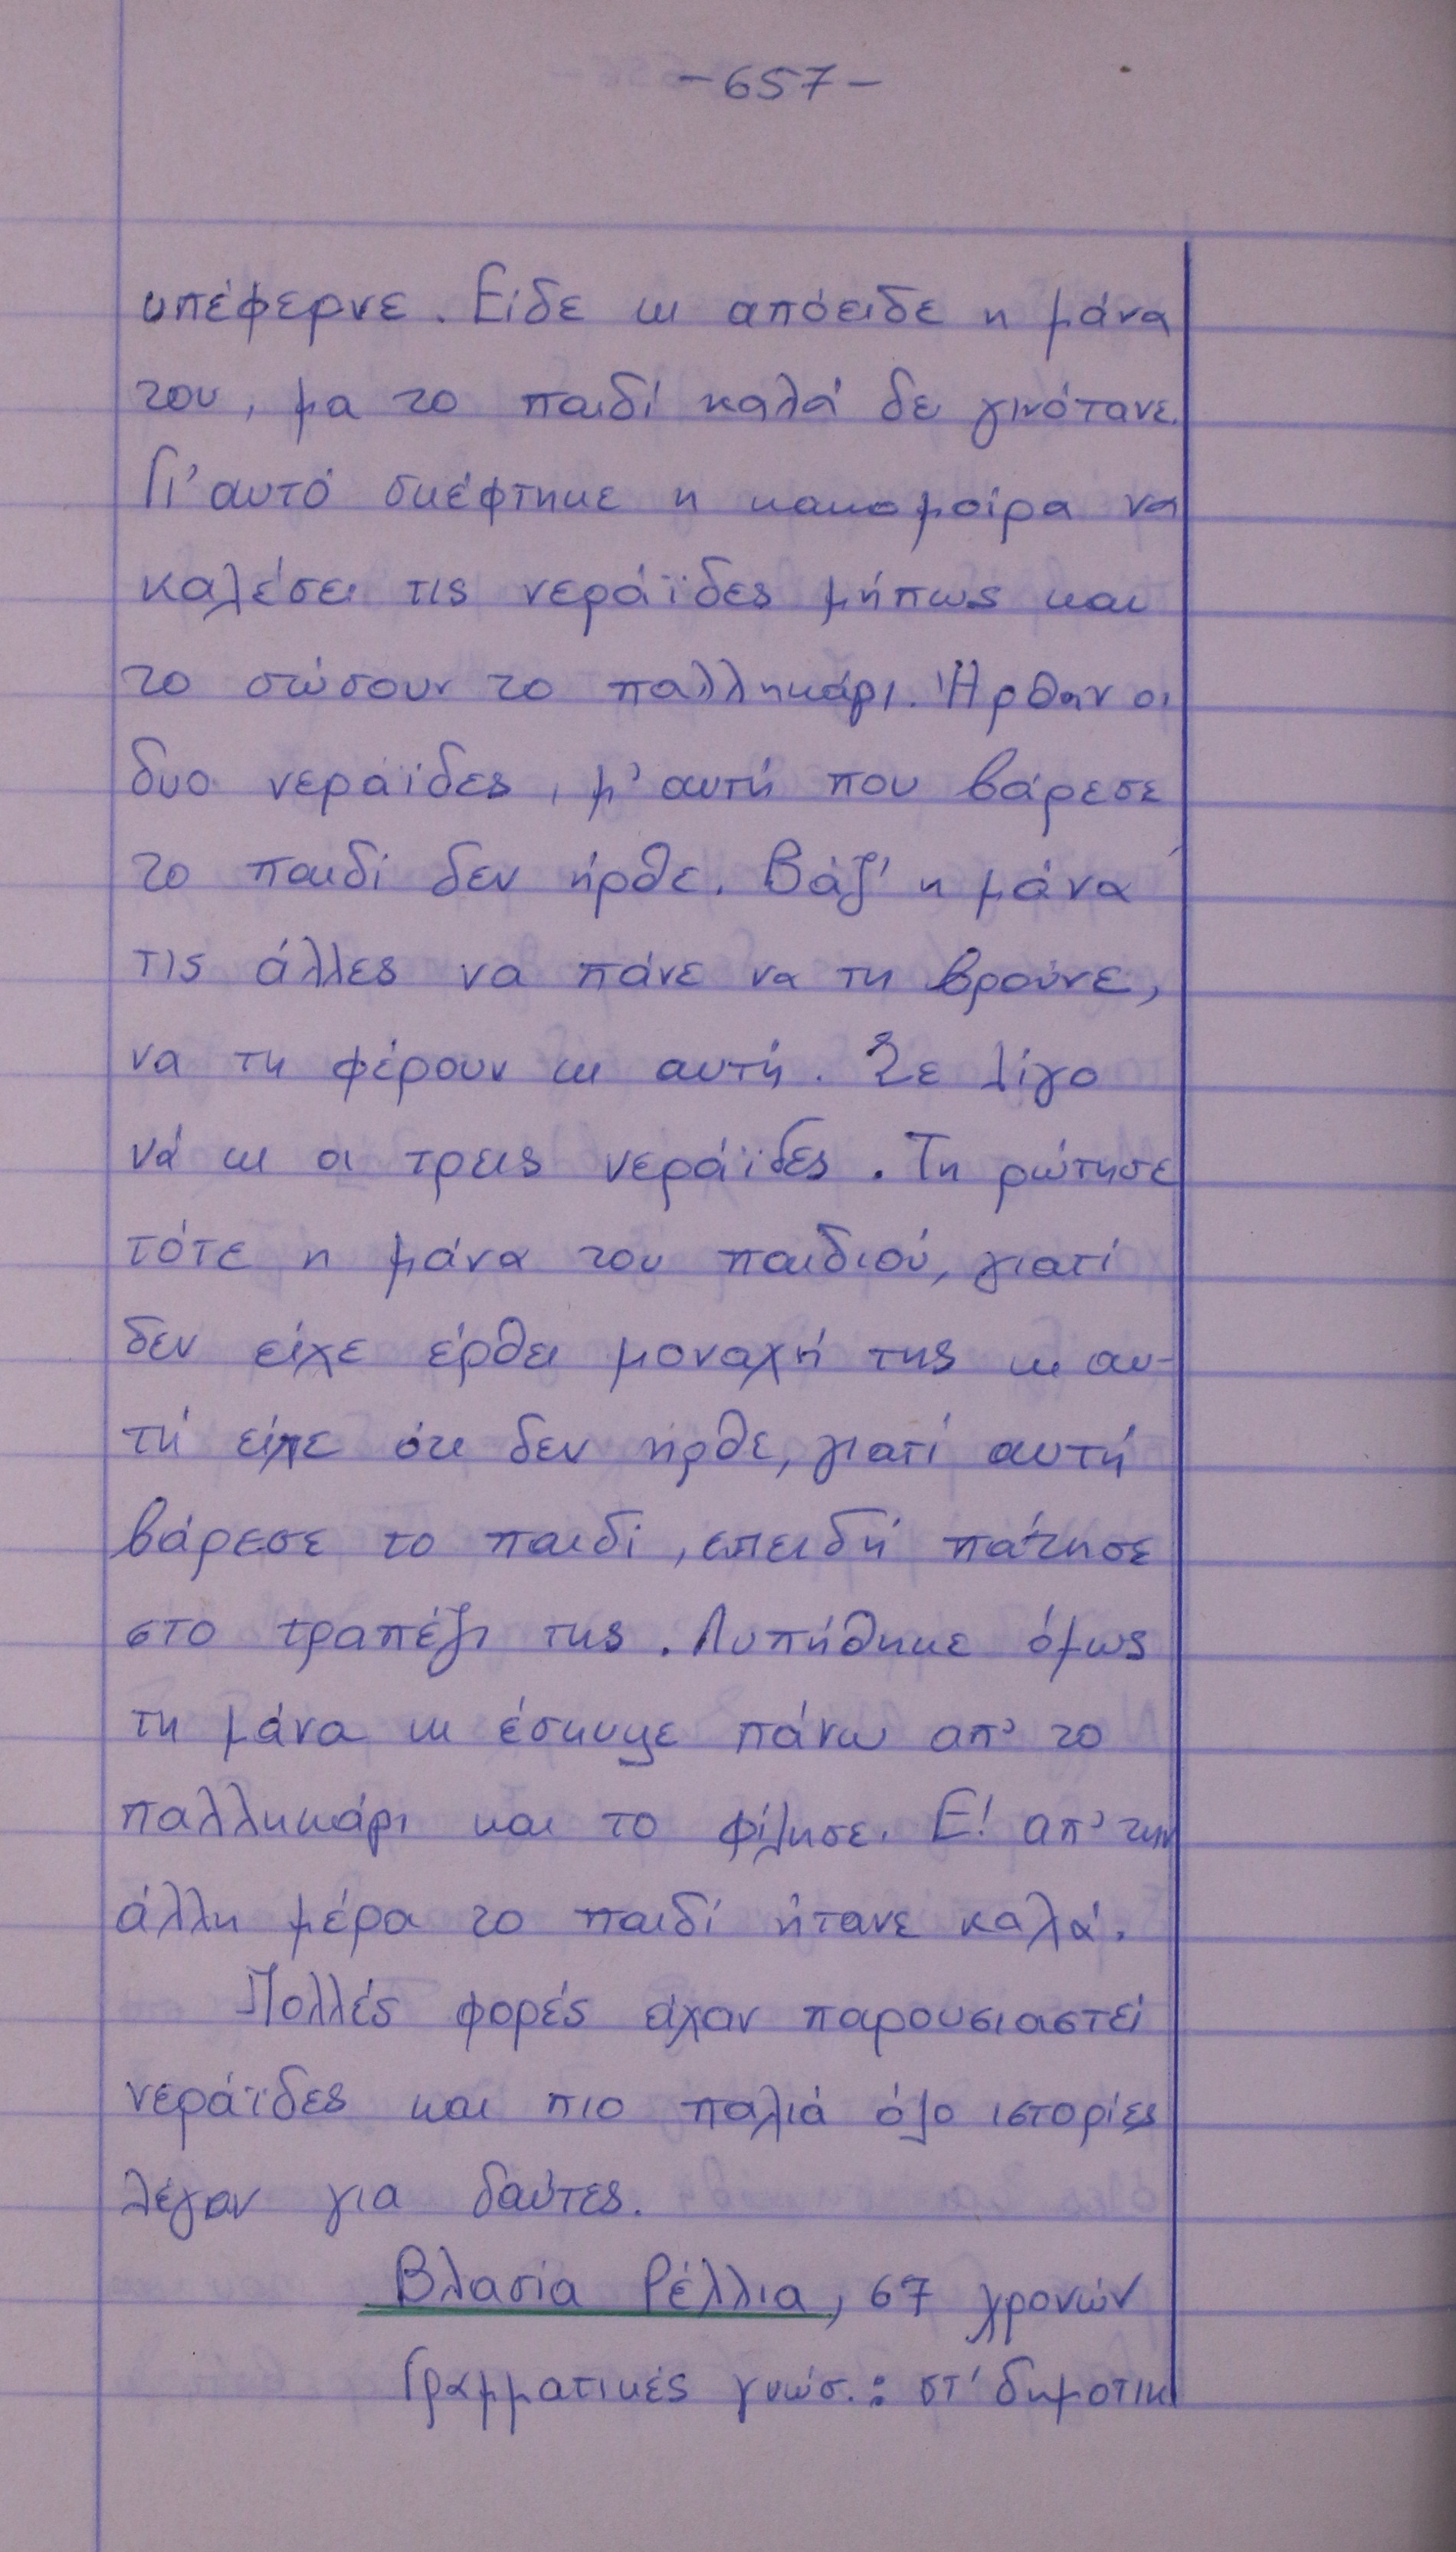 -657-
υπέφερνε. Είδε κι απόειδε η μάνα
του, μα το παιδί καλά δε γινότανε.
Γι' αυτό σκέφτηκε η κακομοίρα να
καλέσει τις νεράϊδες μήπως και
το σώσουν το παλληκάρι. Ήρθαν οι
δυο νεράϊδες, μ' αυτή που βάρεσε
το παιδί δεν ήρθε. Βάζ' η μάνα
τις άλλες να πάνε να τη βρούνε,
να τη φέρουν κι αυτή. Σε λίγο
νά κι οι τρεις νεράϊδες. Τη ρώτησε
τότε η μάνα του παιδιού, γιατί
δεν είχε έρθει μοναχή της κι αυ-
τή είπε ότι δεν ήρθε, γιατί αυτή
βάρεσε το παιδί, επειδή πάτησε
στο τραπέζι της. Λυπήθηκε όμως
τη μάνα κι έσκυψε πάνω απ' το
παλληκάρι και το φίλησε. Ε! απ' την
άλλη μέρα το παιδί ήτανε καλά.
Πολλές φορές είχαν παρουσιαστεί
νεράϊδες και πιο παλιά όλο ιστορίες
λέγαν για δαύτες.
Βλασία Ρέλλια, 67 χρονών
Γραμματικές γνώσ.: στ' δημοτικ